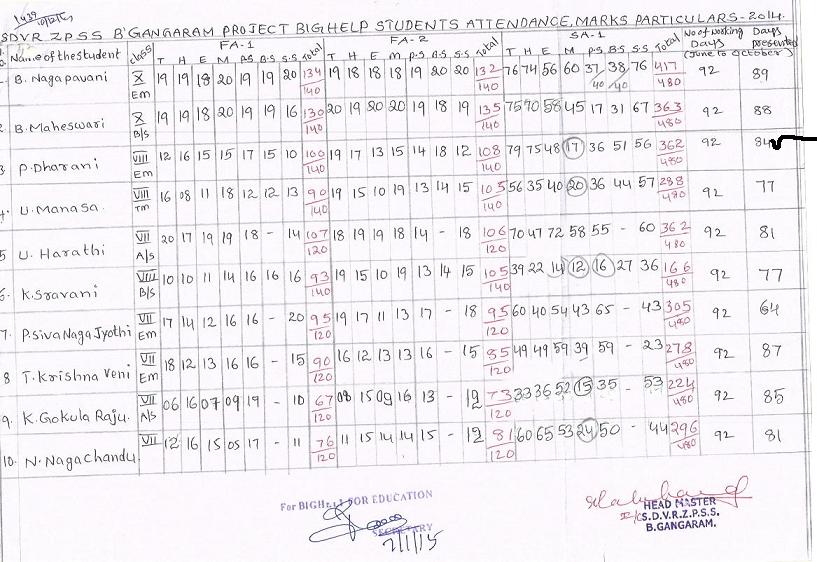 1439
10/2/15
SDVR ZPSS B'GANGARAM PROJECT BIGHELP STUDENTS ATTENDANCE, MARKS PARTICULARS-2014.
Name of the student class FA-1 T H E M P.S B.S S.S Total FA-2 T H E M P.S B.S S.S Total SA-1 T H E M P.S B.S S.S Total No of working Days (June to October) Days presented
B. Nagapavani X Em 19 19 18 20 19 19 20 134/140 19 18 18 18 19 20 20 132/140 76 74 56 60 37/40 38/40 76 417/480 92 89
2 B. Maheswari X B/s 19 19 18 20 19 19 16 130/140 20 19 20 20 19 18 19 135/140 75 70 58 45 17 31 67 363/480 92 88
3 P. Dharani VIII Em 12 16 15 15 17 15 10 100/140 19 17 13 15 14 18 12 108/140 79 75 48 17 36 51 56 362/480 92 84
4. U. Manasa VIII Tm 16 08 11 18 12 12 13 90/140 19 15 10 19 13 14 15 105/140 56 35 40 20 36 44 57 288/480 92 77
5 U. Harathi VII A/s 20 17 19 19 18 - 14 107/120 18 19 19 18 14 - 18 106/120 70 47 72 58 55 - 60 362/480 92 81
6. K. Sravani VIII B/s 10 10 11 14 16 16 16 93/140 19 15 10 19 13 14 15 105/140 39 22 14 12 16 27 36 166/480 92 77
7. P. Siva Naga Jyothi VII Em 17 14 12 16 16 - 20 95/120 19 17 11 13 17 - 18 95/120 60 40 54 43 65 - 43 305/480 92 64
8 T. Krishna Veni VII Em 18 12 13 16 16 - 15 90/120 16 12 13 13 16 - 15 85/120 49 49 59 39 59 - 23 278/480 92 87
9. K. Gokula Raju. VII A/s 06 16 07 09 19 - 10 67/120 08 15 09 16 13 - 12 73/120 33 36 52 15 35 - 53 224/480 92 85
10. N. Nagachandu. VII 12 16 15 05 17 - 11 76/120 11 15 14 14 15 - 12 81/120 60 65 53 24 50 - 44 296/480 92 81
For BIGHELP FOR EDUCATION
SECRETARY
2/1/15
HEAD MASTER
I/c S.D.V.R.Z.P.S.S.
B.GANGARAM.